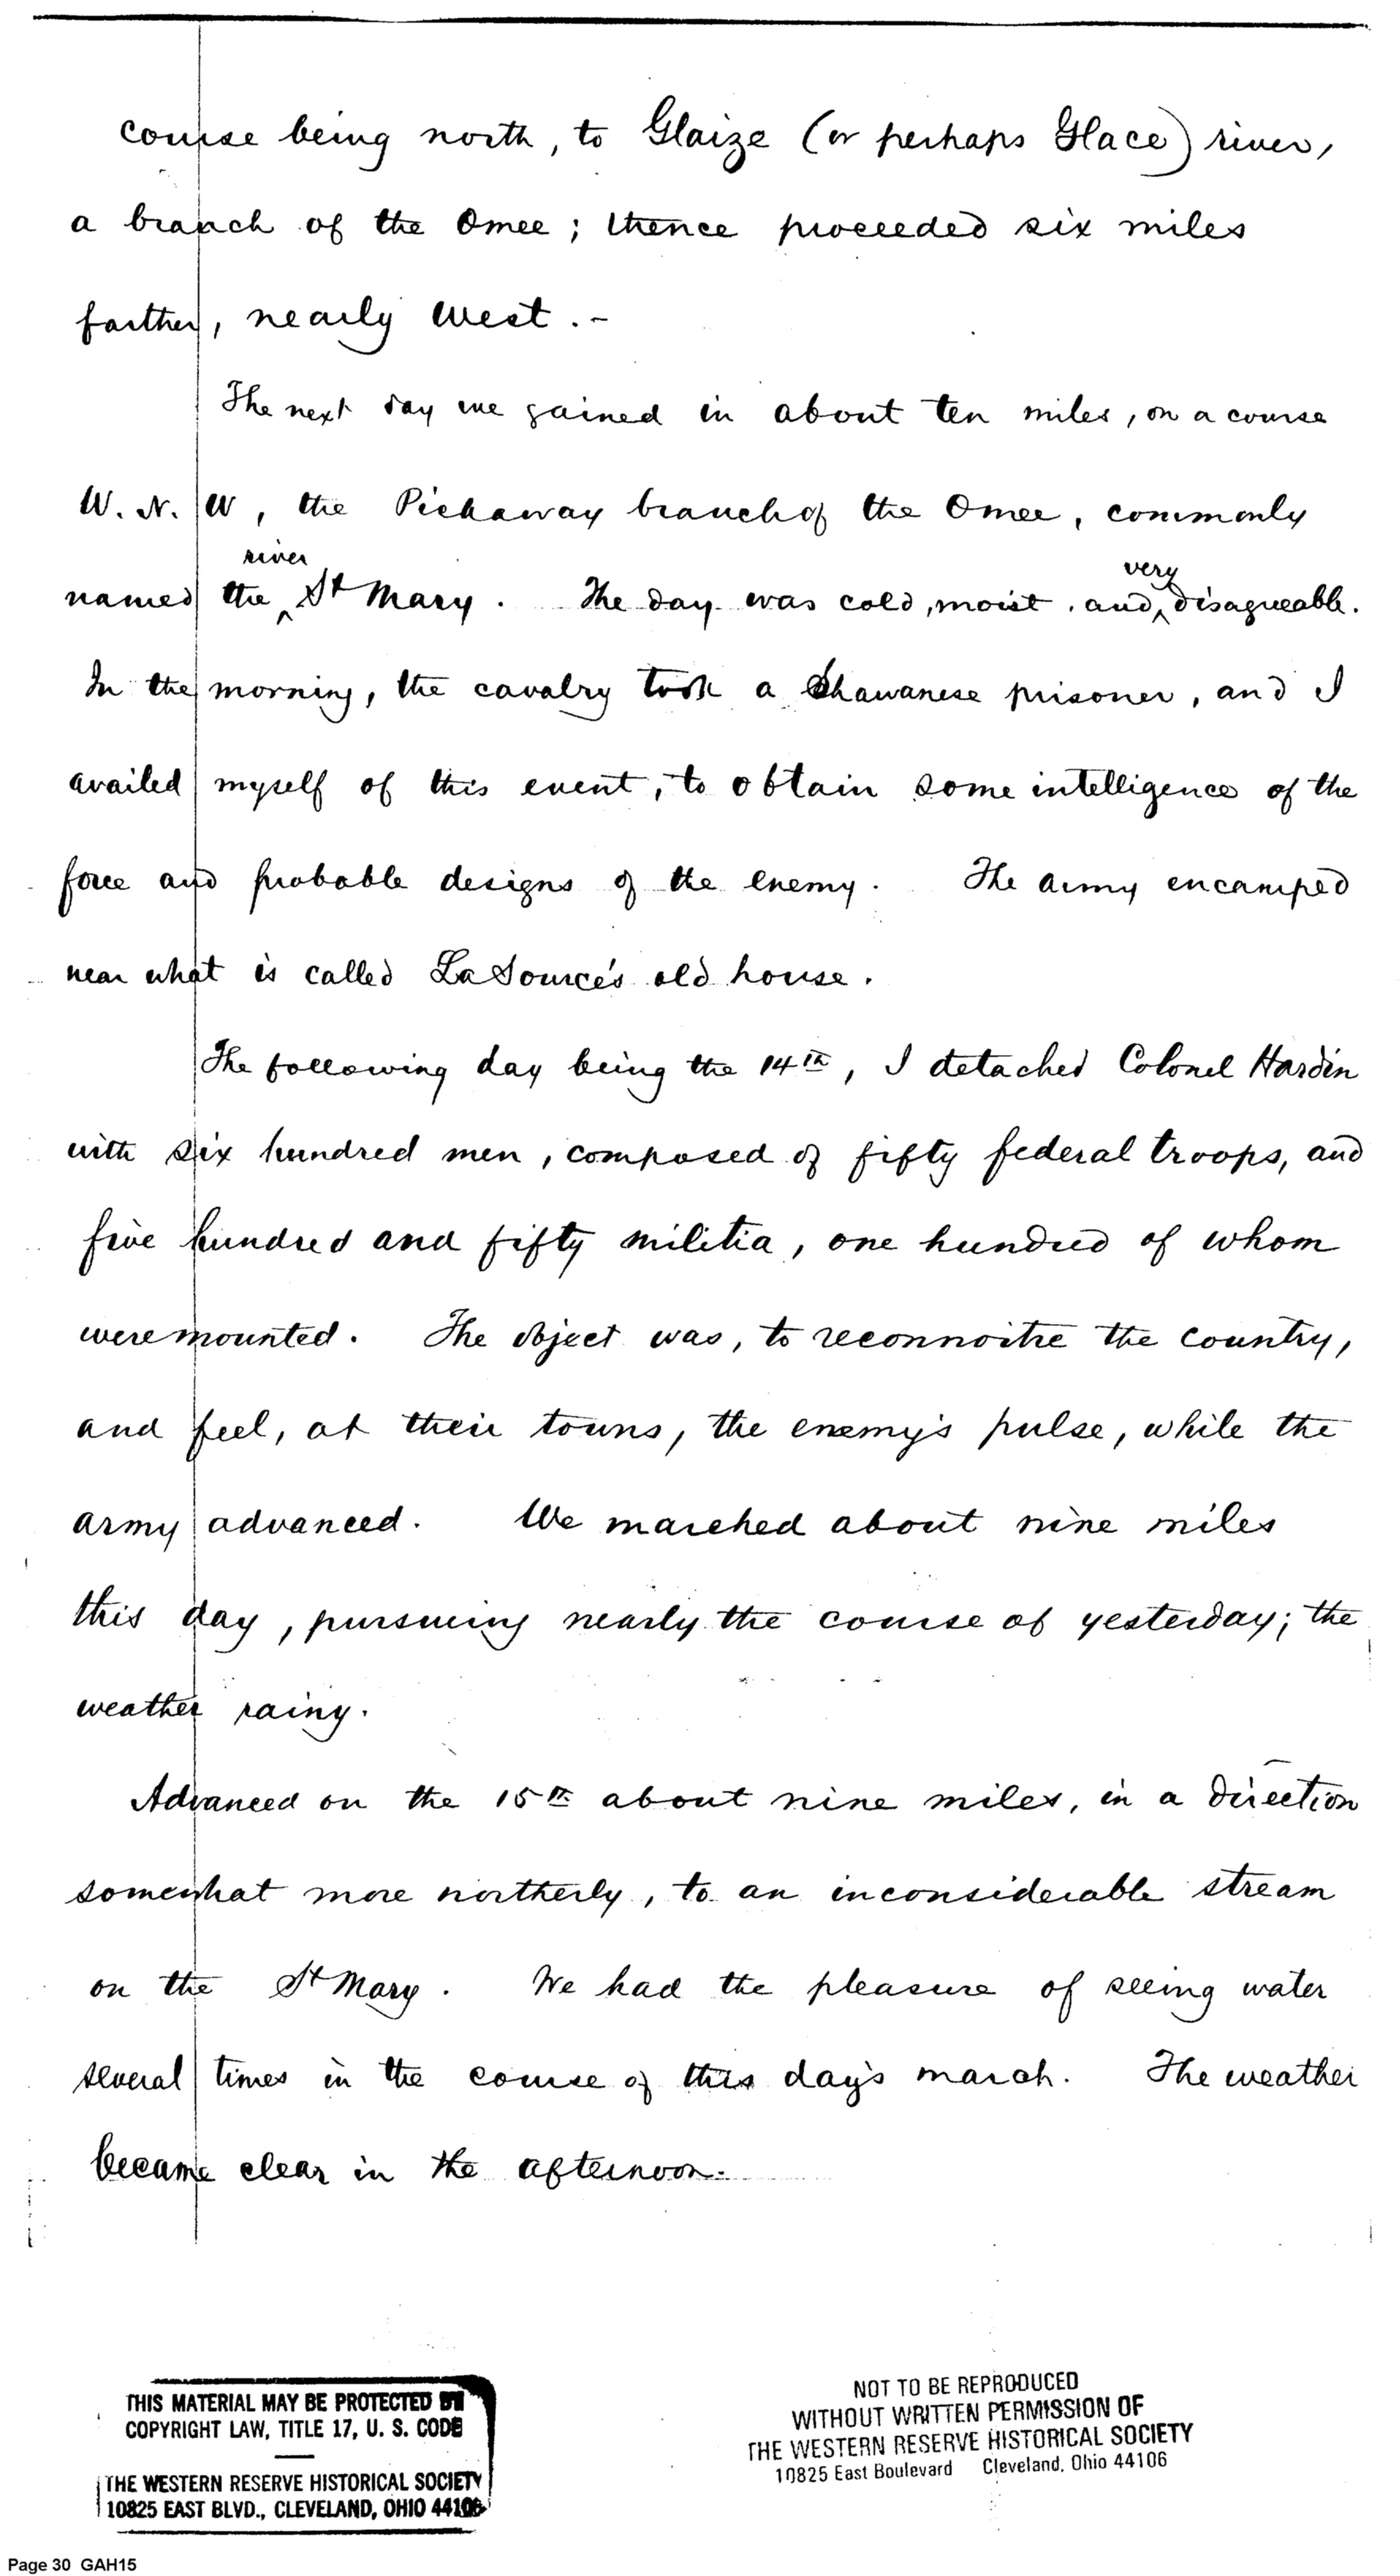 course being north, to Glaize (or perhaps Glace) river,
a branch of the Omee; thence proceeded six miles
farther, nearly west. -
The next day we gained in about ten miles, on a course
W. N. W, the Pickaway branch of the Omee, commonly
named the ‸ river St Mary. The day was cold, moist, and ‸ very disagreeable.
In the morning, the cavalry took a Shawanese prisoner, and I
availed myself of this event, to obtain some intelligence of the
force and probable designs of the enemy. The army encamped
near what is called LaSource's old house.
The following day being the 14th, I detached Colonel Hardin
with six hundred men, composed of fifty federal troops, and
five hundred and fifty militia, one hundred of whom
were mounted. The object was, to reconnoitre the country,
and feel, at their towns, the enemy's pulse, while the
army advanced. We marched about nine miles
this day, pursueing nearly the course of yesterday; the
weather rainy.
Advanced on the 15th about nine miles, in a direction
somewhat more northerly, to an inconsiderable stream
on the St Mary. We had the pleasure of seeing water
several times in the course of this day's march. The weather
became clear in the afternoon.
THIS MATERIAL MAY BE PROTECTED BY
COPYRIGHT LAW, TITLE 17, U. S. CODE
THE WESTERN RESERVE HISTORICAL SOCIETY
10825 EAST BLVD., CLEVELAND, OHIO 44106
NOT TO BE REPRODUCED
WITHOUT WRITTEN PERMISSION OF
THE WESTERN RESERVE HISTORICAL SOCIETY
10825 East Boulevard Cleveland, Ohio 44106
Page 30 GAH15